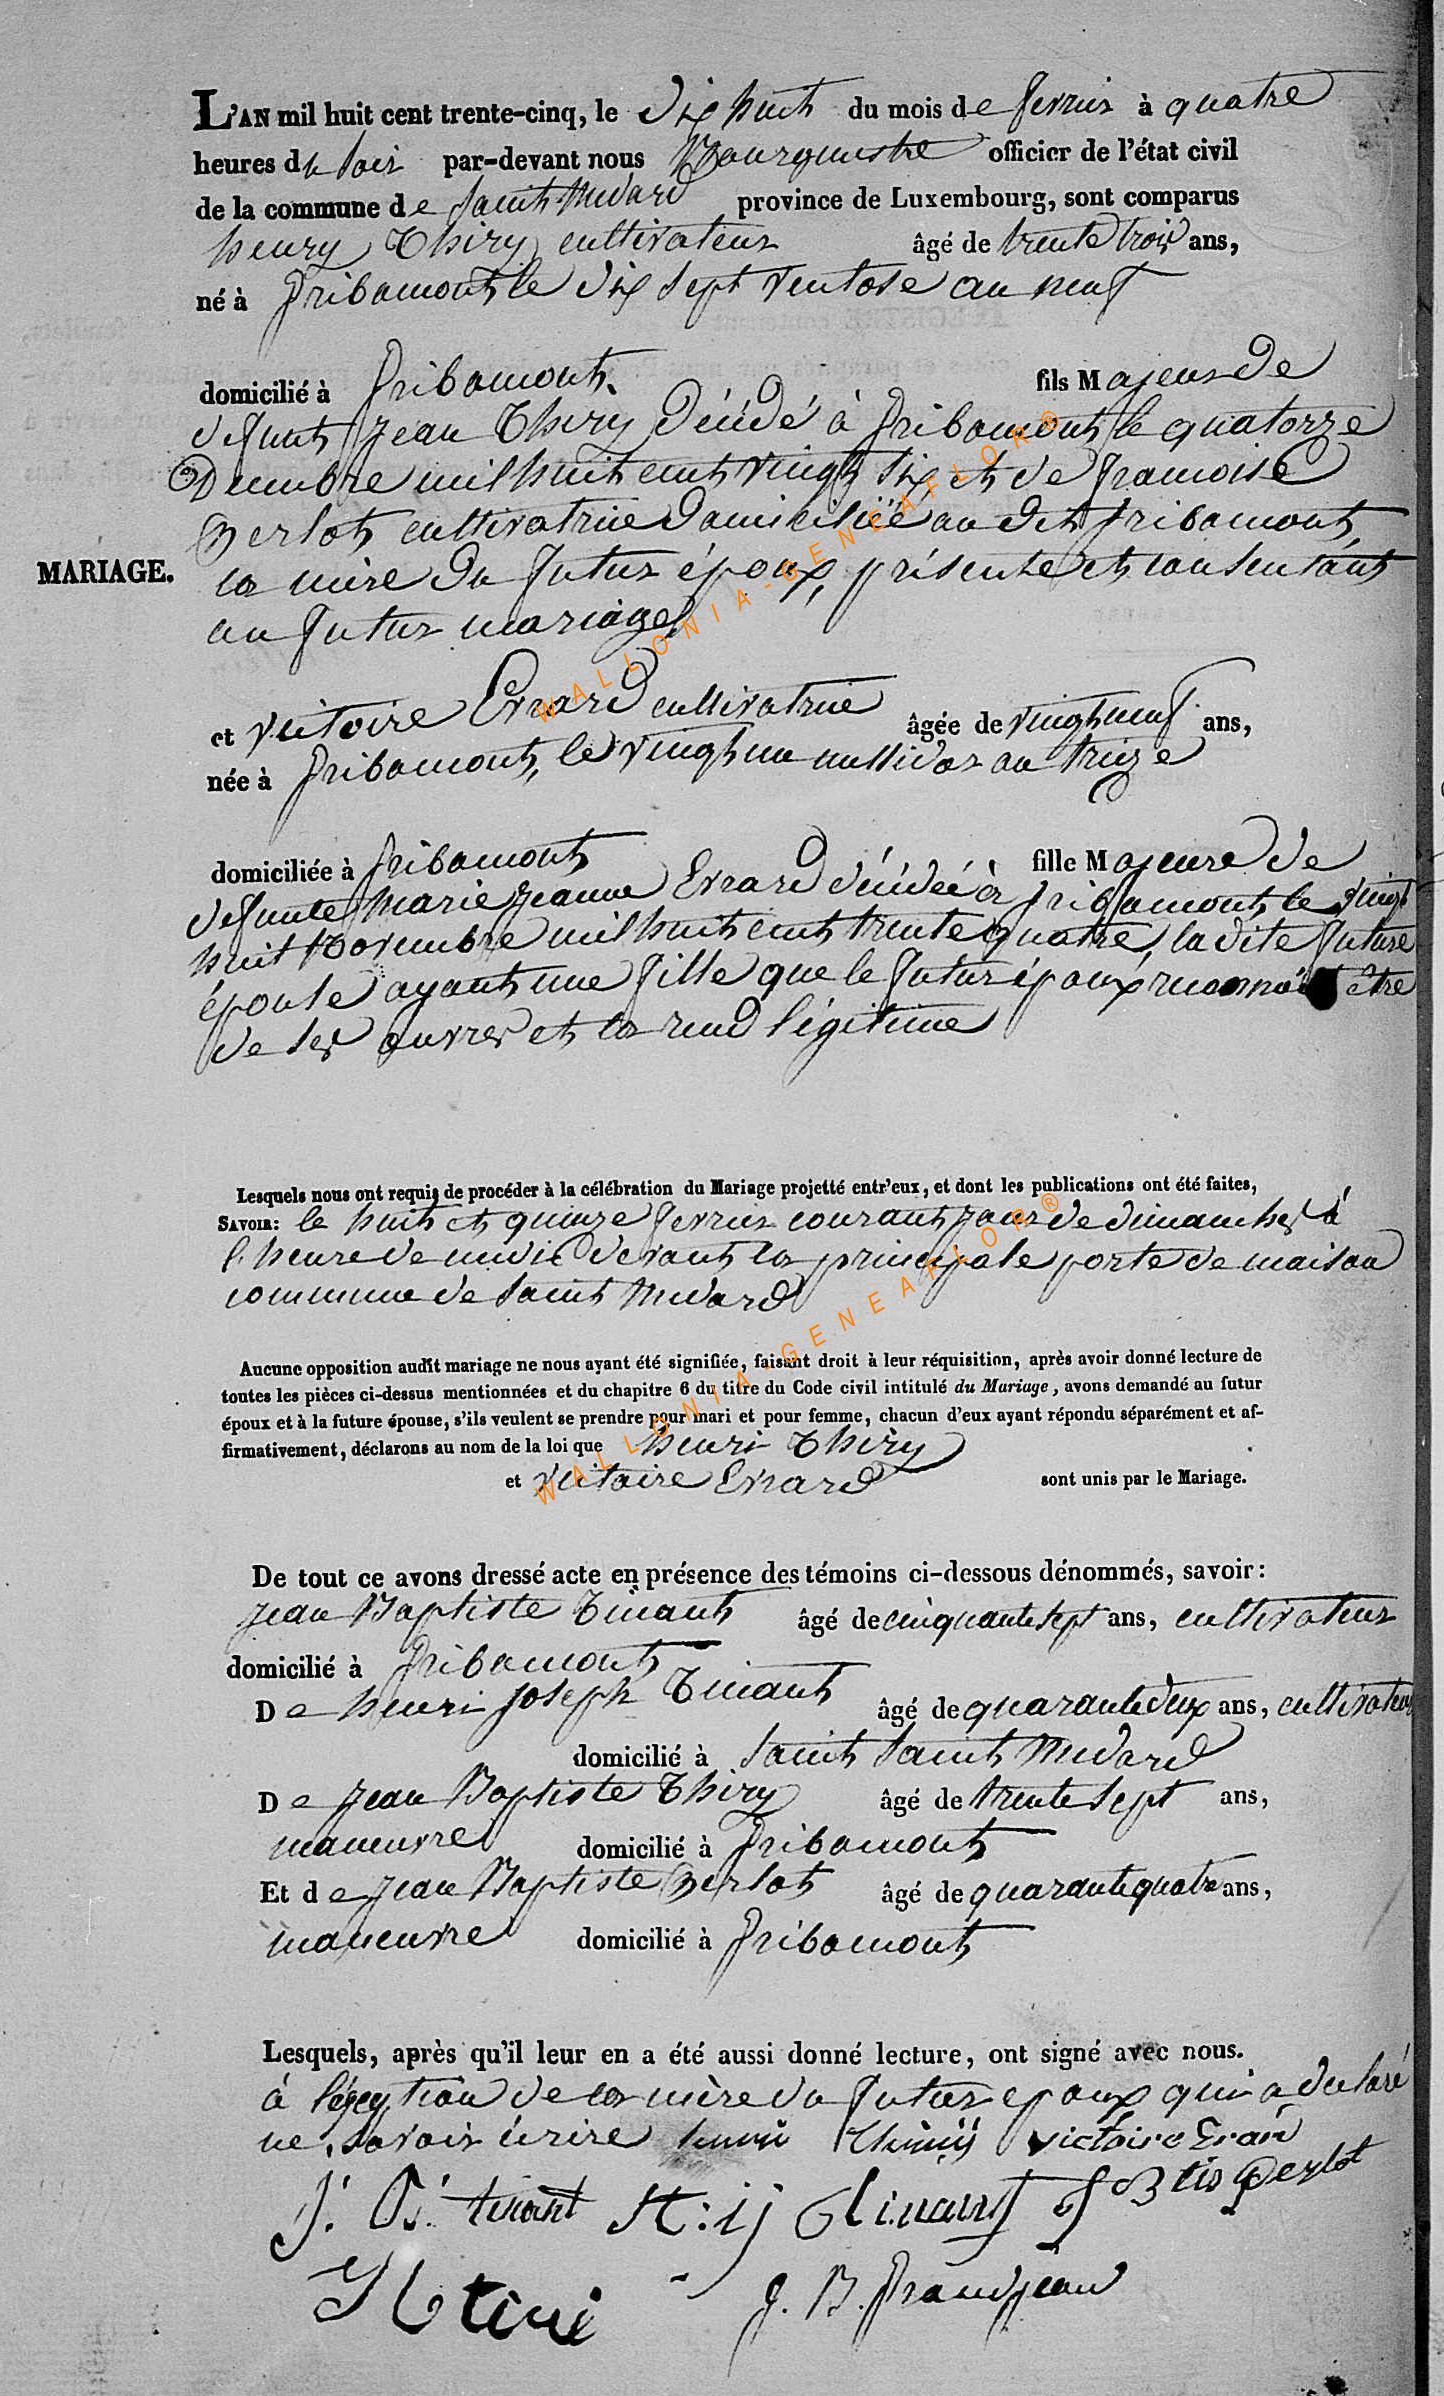 L'AN mil huit cent trente-cinq, le dix huit du mois de fevrier à quatre
heures du soir par-devant nous Bourgmestre officier de l'état civil
de la commune de Saint Medard province de Luxembourg, sont comparus
henry Thiry cultivateur âgé de trente trois ans,
né à Gribomont le dix sept ventose an neuf
domicilié à Gribomont. fils Majeur de
defunt Jean Thiry décédé à Gribomont le quatorze
Decembre mil huit cent vingt six et de françoise
Perlot cultivatrice domiciliée au dit Gribomont,
MARIAGE. la mère du futur époux, présente et consentant
au futur mariage
et victoire Evrard cultivatrice âgée de vingt neuf ans,
née à Gribomont, le vingt un messidor an treize
domiciliée à Gribomont fille Majeure de
defunte Marie jeanne Evrard décédée à Gribomont le vingt
huit Novembre mil huit cent trente quatre, la dite future
épouse ayant une fille que le futur époux reconnait être
de ses œuvres et la rend légitime
Lesquels nous ont requis de procéder à la célébration du Mariage projetté entr'eux, et dont les publications ont été faites,
SAVOIR: le huit et quinze fevrier courant jours de dimanches à
l'heure de midi devant la principale porte de maison
commune de Saint Medard
Aucune opposition audit mariage ne nous ayant été signifiée, faisant droit à leur réquisition, après avoir donné lecture de
toutes les pièces ci-dessus mentionnées et du chapitre 6 du titre du Code civil intitulé du Mariage, avons demandé au futur
époux et à la future épouse, s'ils veulent se prendre pour mari et pour femme, chacun d'eux ayant répondu séparément et af-
firmativement, déclarons au nom de la loi que henri Thiry
et victoire Evrard sont unis par le Mariage.
De tout ce avons dressé acte en présence des témoins ci-dessous dénommés, savoir:
Jean Baptiste Tinant âgé de cinquante sept ans, cultivateur
domicilié à Gribomont
De henri joseph Tinant âgé de quarante deux ans, cultivateur
domicilié à Saint Saint Medard
De Jean Baptiste Thiry âgé de trente sept ans,
manœuvre domicilié à Gribomont
Et de Jean Baptiste Perlot âgé de quarante quatre ans,
manœuvre domicilié à Gribomont
Lesquels, après qu'il leur en a été aussi donné lecture, ont signé avec nous.
à l'éxeption de la mère du futur epoux qui a declaré
ne savoir écrire henri victoire Evrard
J. B. tinant H: ij tinant J Btis Perlot
J. B. Grandjean
WALLONIA-GENEAFLOR®
WALLONIA-GENEAFLOR®